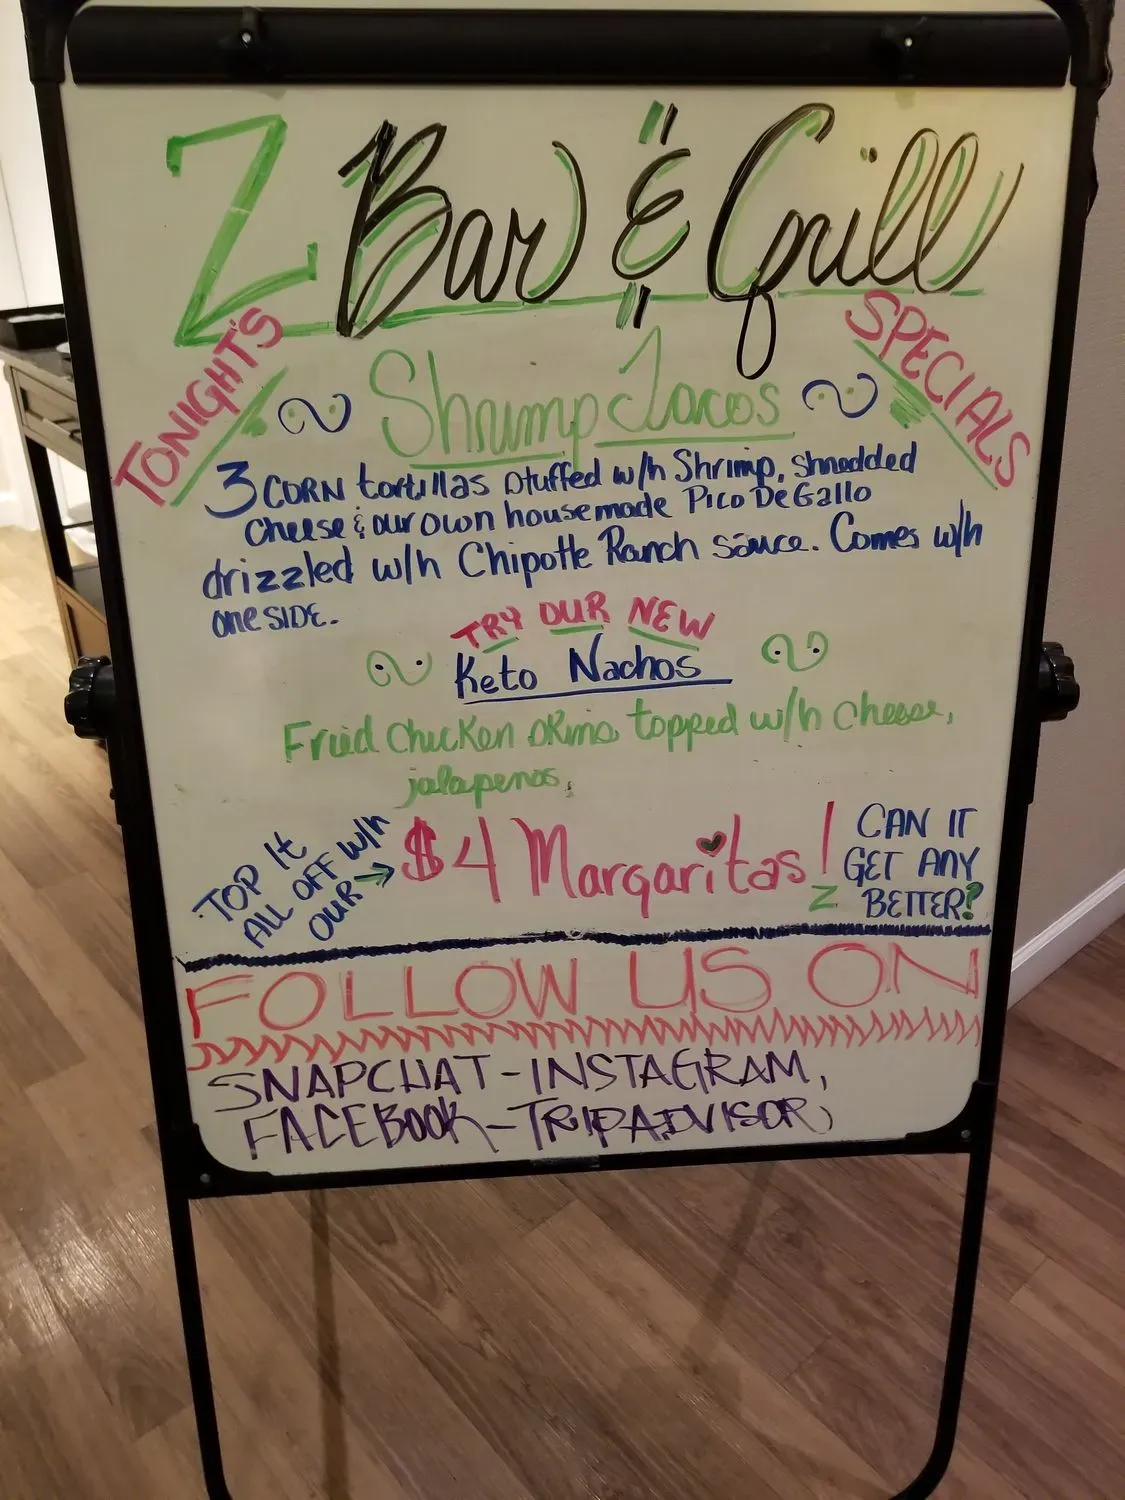 Z Bar & Grill
TONIGHT'S
SPECIALS
Shrimp Tacos
3 CORN tortillas stuffed w/h Shrimp, shredded
cheese & our own housemade Pico De Gallo
drizzled w/h Chipotle Ranch sauce. Comes w/h
one SIDE.
TRY OUR NEW
Keto Nachos
Fried chicken skins topped w/h cheese,
jalapenos.
TOP It
ALL OFF w/h
OUR →
$4 Margaritas!
CAN IT
GET ANY
BETTER?
Z
FOLLOW US ON
SNAPCHAT-INSTAGRAM,
FACEBOOK-TRIPADVISOR,